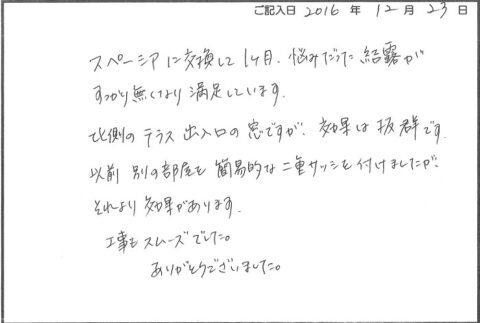 ご記入日 2016 年 12 月 23 日
スペーシアに交換して1ヶ月、悩みだった結露が
すっかり無くなり満足しています。
北側のテラス出入口の窓ですが、効果は抜群です。
以前別の部屋を簡易的な二重サッシを付けましたが、
それより効果があります。
工事もスムーズでした。
ありがとうございました。